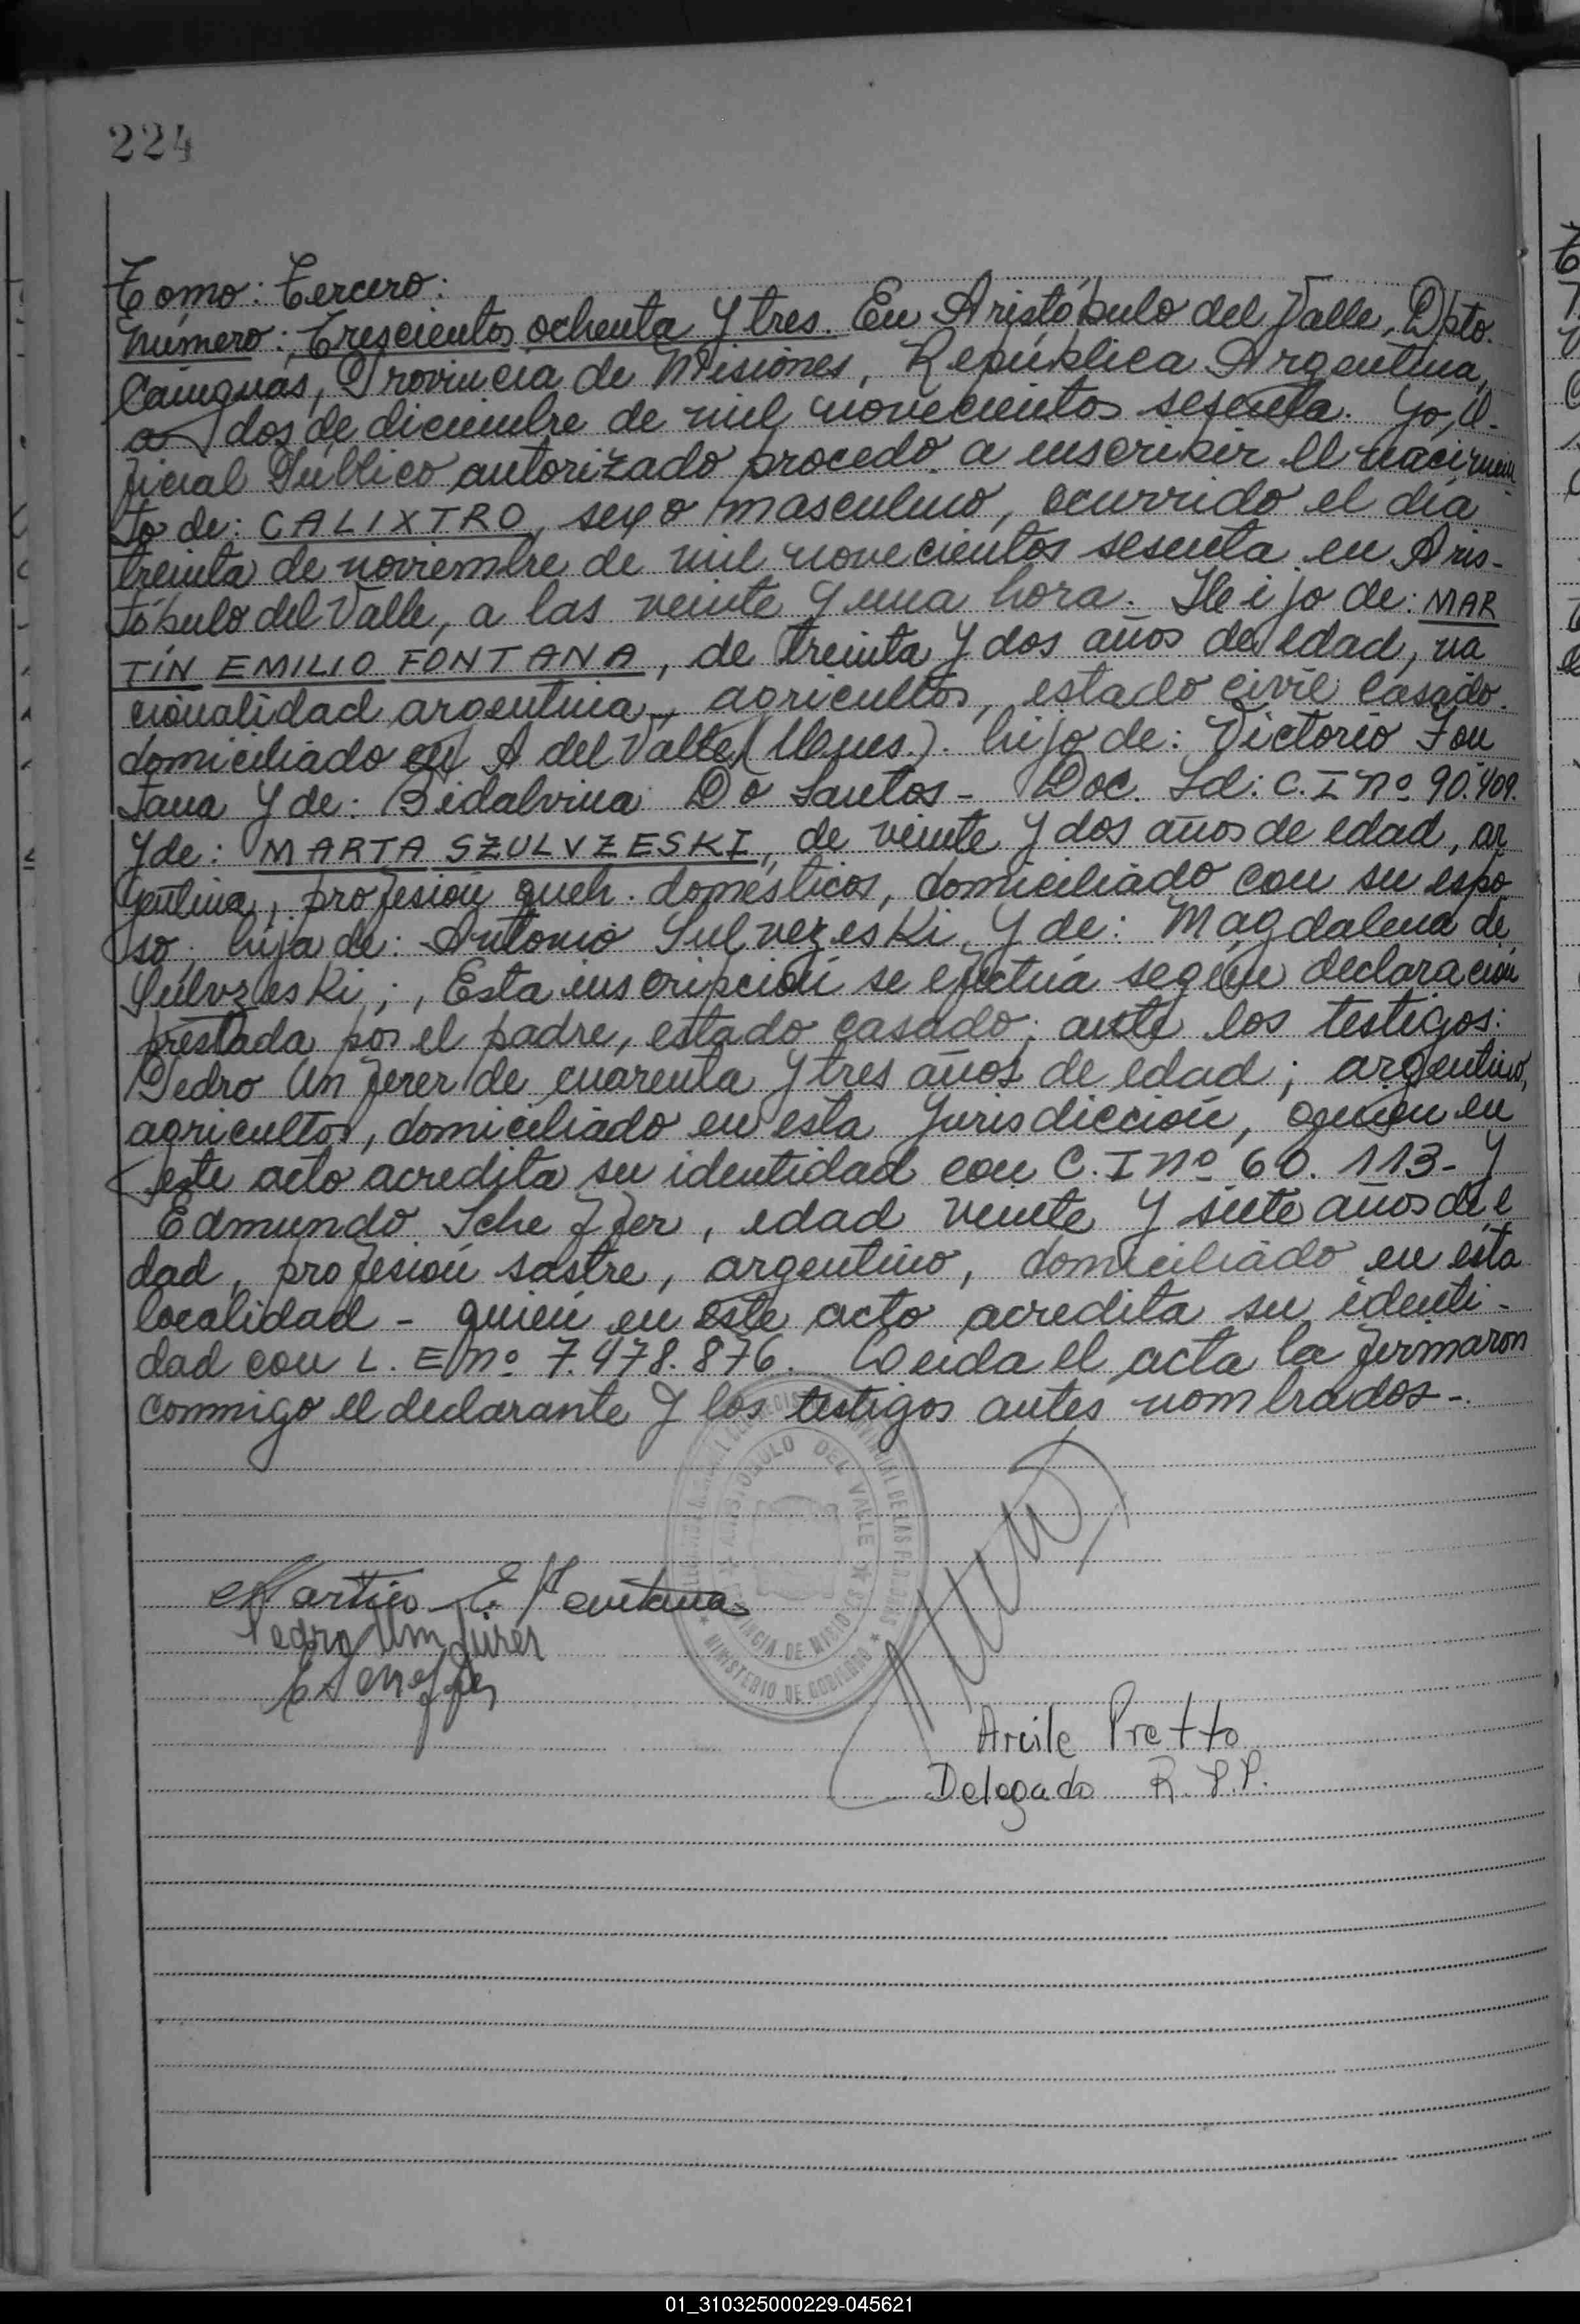 224
Tomo: Tercero:
Número: Trescientos ochenta y tres. En Aristóbulo del Valle, Dpto.
Cainguás, Provincia de Misiones, República Argentina,
a dos de diciembre de mil novecientos sesenta. Yo, O-
ficial Público autorizado procedo a inscribir el nacimien
to de: CALIXTRO, sexo masculino, ocurrido el día
treinta de noviembre de mil novecientos sesenta en Aris-
tóbulo del Valle, a las veinte y una hora. Hijo de: MAR
TÍN EMILIO FONTANA, de treinta y dos años de edad, na
cionalidad argentina, agricultor, estado civil casado.
domiciliado en A del Valle (Mnes.). hijo de: Victorio Fon
tana y de: Bidalvina Do Santos - Doc. Id: C.I nº 90.409.
y de: MARTA SZULVZESKI, de veinte y dos años de edad, ar
gentina, profesión queh. domésticos, domiciliado con su espo
so, hija de: Antonio Sulvezeski, y de: Magdalena de
Sulvzeski; , Esta inscripción se efectúa según declaración
prestada por el padre, estado casado; ante los testigos:
Pedro Unferer de cuarenta y tres años de edad; argentino,
agricultor, domiciliado en esta Jurisdicción, quien en
este acto acredita su identidad con C.I nº 60.113- y
Edmundo Scheffer, edad veinte y siete años de e
dad, profesión sastre, argentino, domiciliado en esta
localidad - quien en este acto acredita su identi-
dad con L.E nº 7.478.876. Leida el acta la firmaron
conmigo el declarante y los testigos antes nombrados -.
ARISTOBULO DEL VALLE
MINISTERIO DE GOBIERNO
Martin E. Fontana
Pedro
E Scheffer
Arcile Pretto
Delegado R.P.P.
01_310325000229-045621